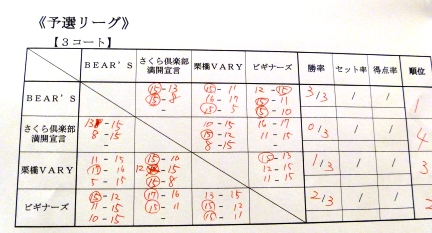 《予選リーグ》
【3コート】
BEAR'S さくら倶楽部 満開宣言 栗橋VARY ビギナーズ 勝率 セット率 得点率 順位
BEAR'S 15-13 15-11 12-15 3/3 / / 1
15-8 16-17 15-11
- 15-10
さくら倶楽部 満開宣言 13-15 10-15 16-17 0/3 / / 4
8-15 15-12 11-15
- 8-15 -
栗橋VARY 11-15 15-10 15-13 1/3 / / 3
17-16 12-15 12-15
5-15 15-8 11-15
ビギナーズ 15-12 17-16 13-15 2/3 / /
11-15 15-11 15-12
10-15 - 15-11